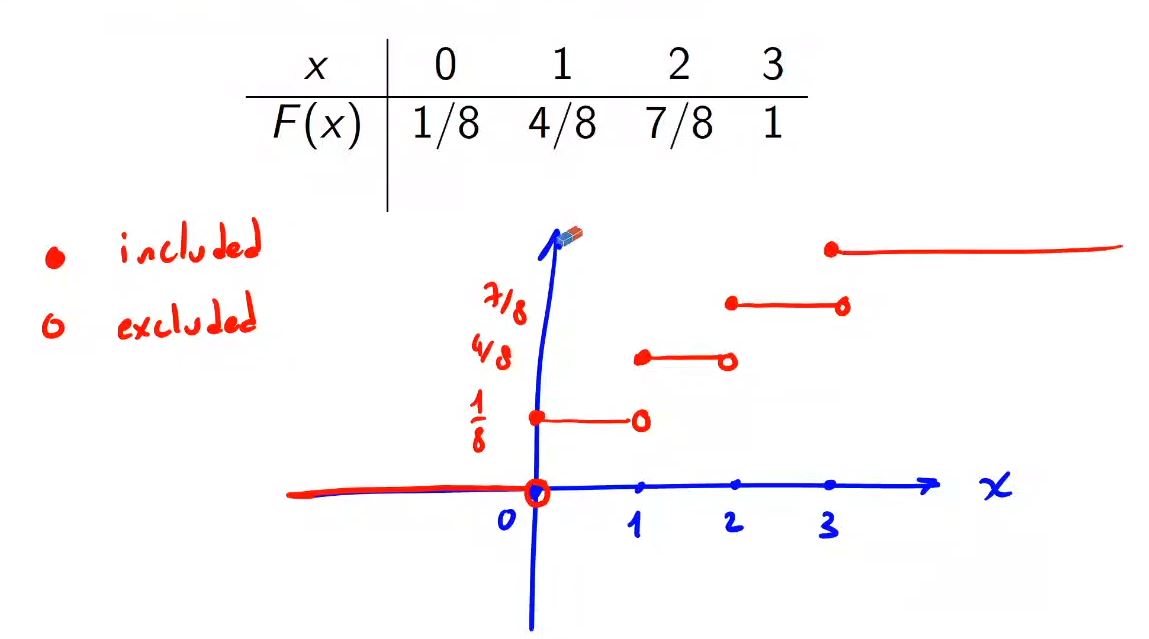 x 0 1 2 3
F(x) 1/8 4/8 7/8 1
included
excluded
7/8
4/8
1/8
x
0 1 2 3